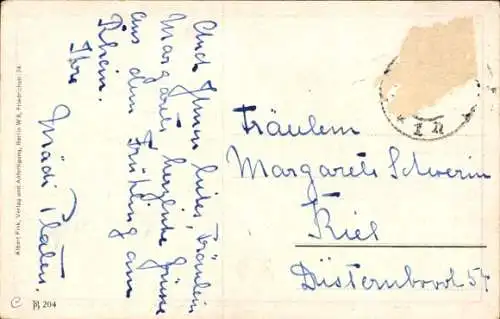 Auch Ihnen, liebes Fräulein
Margarete herzliche Grüsse
aus dem Frühling am
Rhein.
Ihre
Mädi Platen.
Fräulein
Margarete Schwerin
Kiel
Düsternbrook 54
Albert Fink, Verlag und Anfertigung, Berlin W 8, Friedrichstr. 74
204